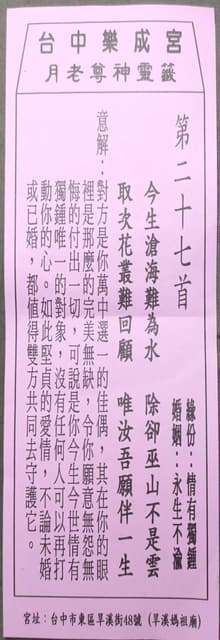 台中樂成宮
月老尊神靈籤
第二十七首
今生滄海難為水　除卻巫山不是雲
取次花叢難回顧　唯汝吾願伴一生
緣份：情有獨鍾
婚姻：永生不渝
意解：對方是你萬中選一的佳偶，其在你的眼
裡是那麼的完美無缺，令你願意無怨無
悔的付出一切，可說是你今生今世情有
獨鍾唯一的對象，沒有任何人可以再打
動你的心。如此堅貞的愛情，不論未婚
或已婚，都值得雙方共同去守護它。
宮址：台中市東區旱溪街48號（旱溪媽祖廟）